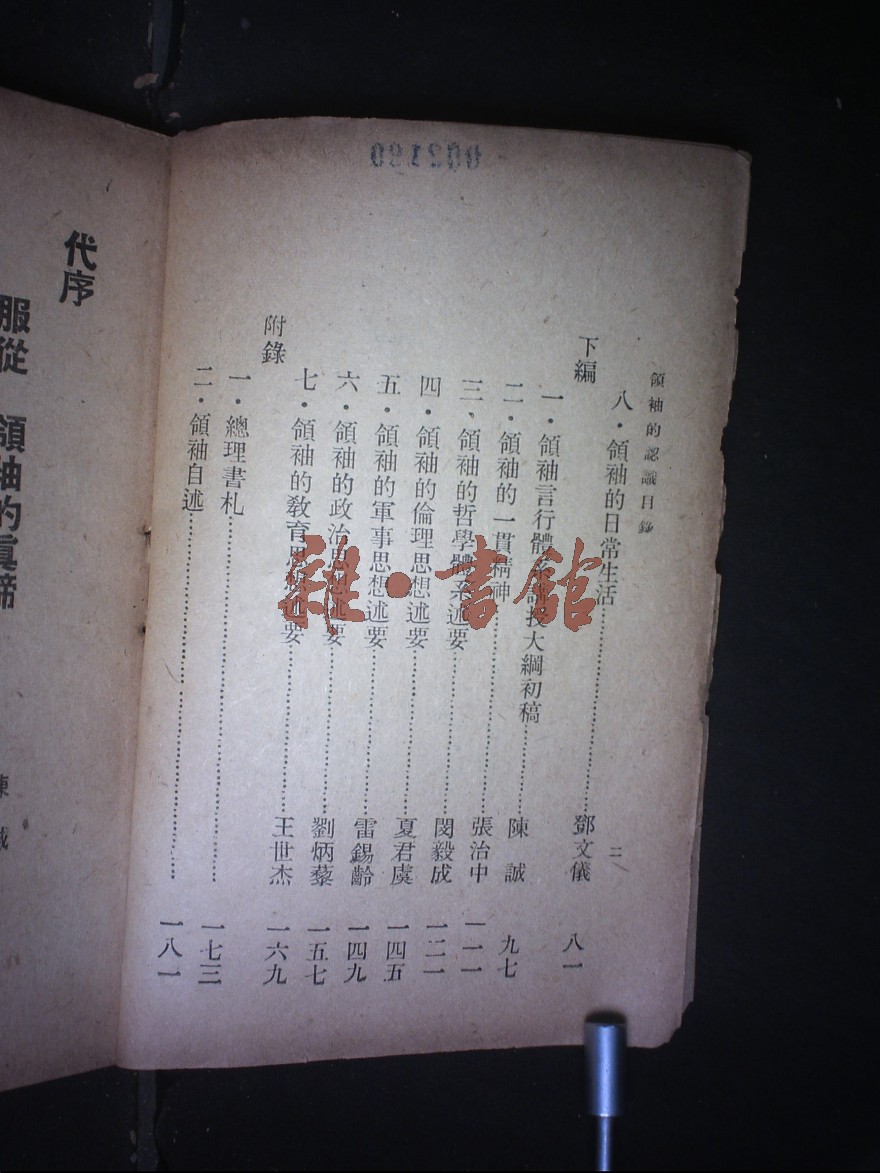 領袖的認識目錄
二
八・領袖的日常生活……鄧文儀 八一
下編
一・領袖言行體系講授大綱初稿……陳 誠 九七
二・領袖的一貫精神……張治中 一一一
三、領袖的哲學體系述要……閔毅成 一二一
四・領袖的倫理思想述要……夏君虞 一四五
五・領袖的軍事思想述要……雷錫齡 一四九
六・領袖的政治思想述要……劉炳藜 一五七
七・領袖的教育思想述要……王世杰 一六九
附錄
一・總理書札……一七三
二・領袖自述……一八一
代序
服從 領袖的眞諦
陳 誠
雜・書館